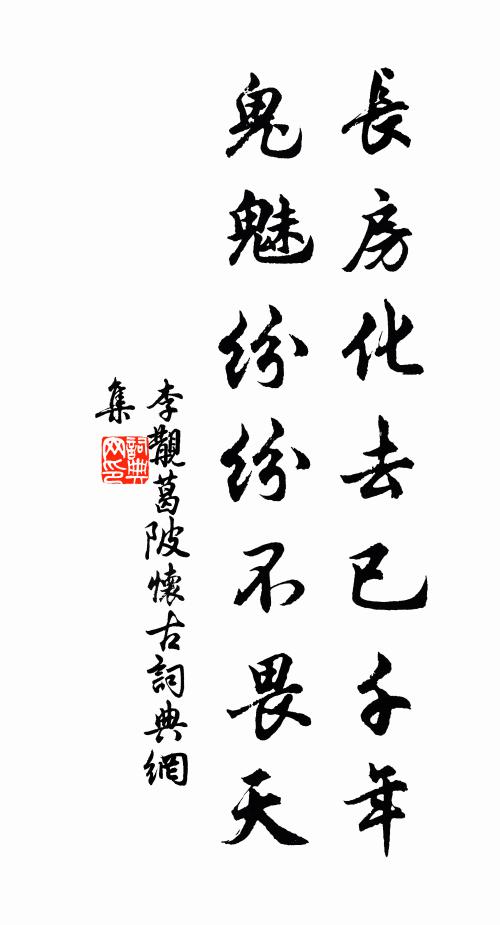 長房化去已千年
鬼魅紛紛不畏天
李觀葛陂懷古詞典網
集
詞典
网印